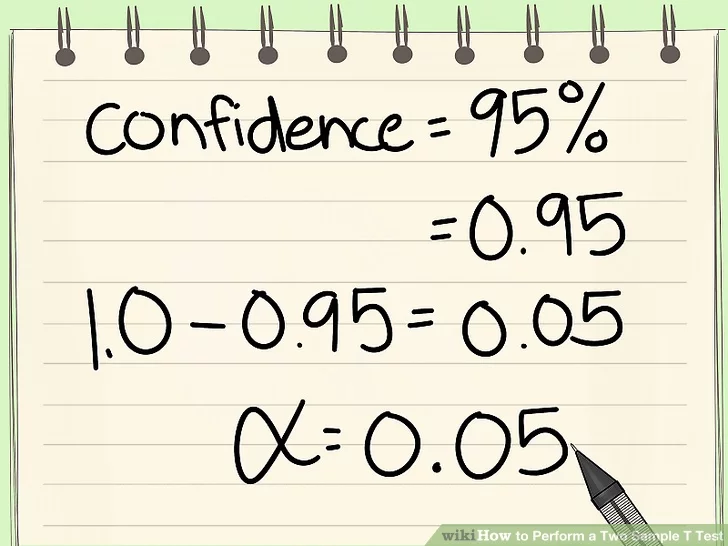 Confidence = 95%
= 0.95
1.0 - 0.95 = 0.05
α = 0.05
wikiHow to Perform a Two Sample T Test